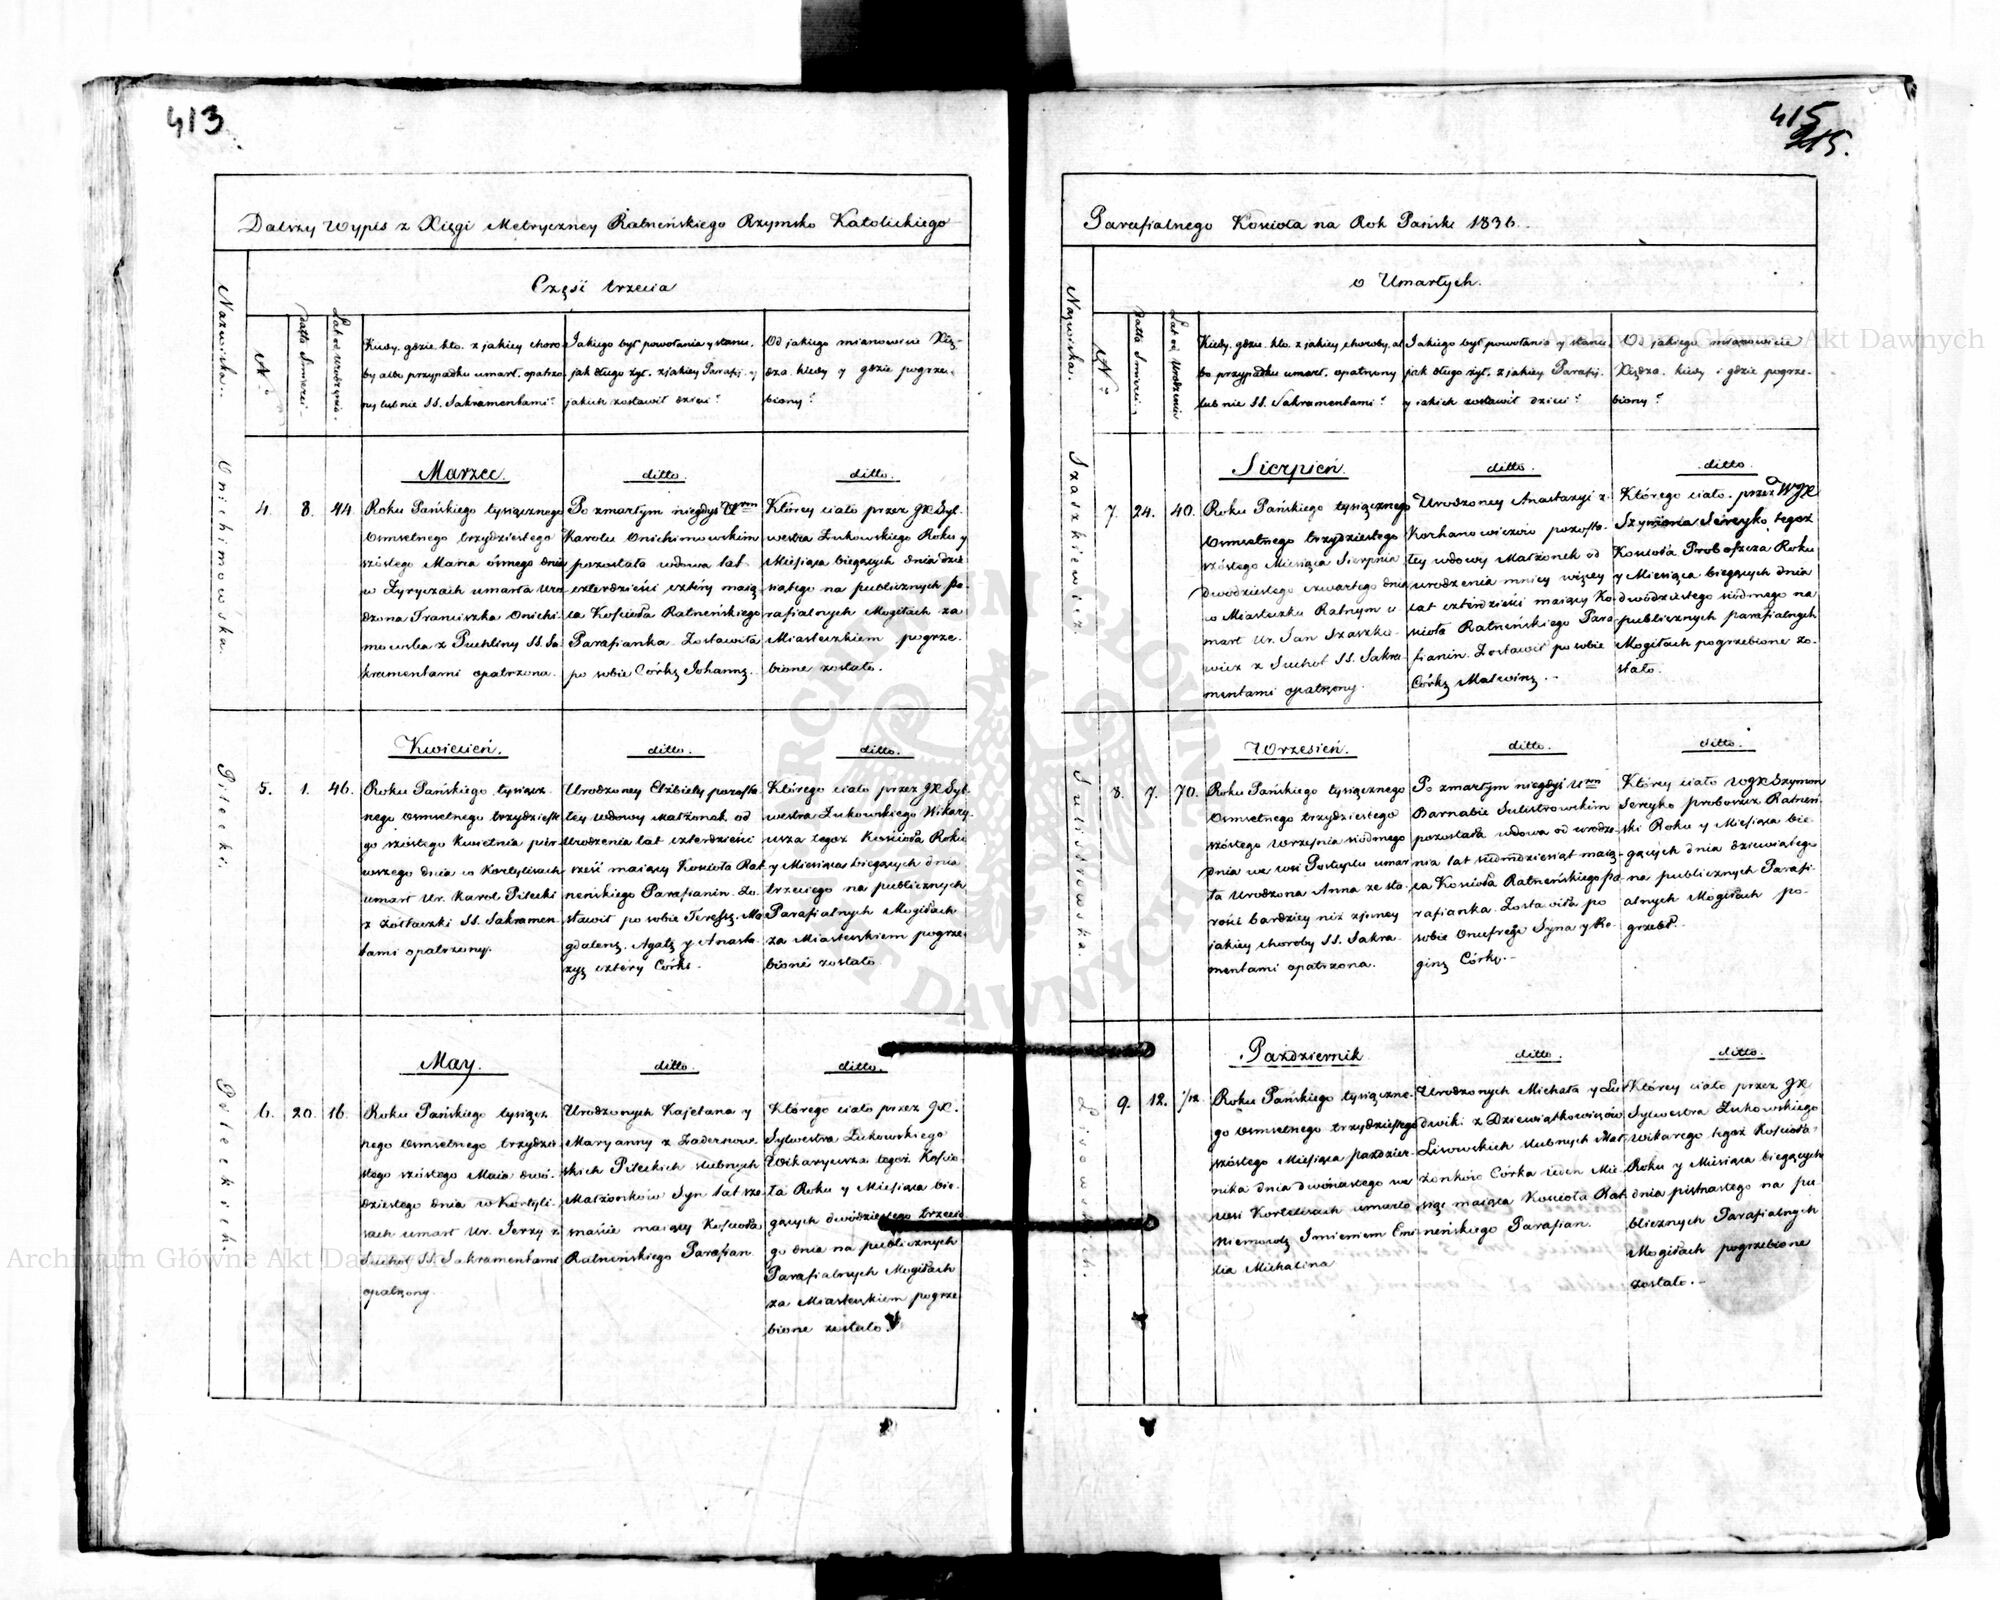 413
Dalszy Wypis z Xięgi Metryczney Ratneńskiego Rzymsko Katolickiego
Część trzecia
Nazwiska.
N°
Datta Śmierci.
Lat od Urodzenia.
Kiedy, gdzie, kto, z jakiey choro-
by albo przypadku umarł, opatrzo-
ny lub nie SS. Sakramentami?
Jakiego był powołania y stanu,
jak długo żył, z jakiey Parafij, y
jakich zostawił dzieci?
Od jakiego mianowicie Xię-
dza, kiedy y gdzie pogrze-
biony?
Onichimowska.
4.
8.
44.
Marzec.
Roku Pańskiego tysiącznego
Osmsetnego trzydziestego
szóstego Marca ósmego dnia
w Zyryczach umarła Uro
dzona Franciszka Onichi
mowska z Puchliny SS. Sa-
kramentami opatrzona.
ditto.
Po zmarłym niegdyś Urm
Karolu Onichimowskim
pozostała wdowa lat
czterdzieści cztéry mają-
ca Kościoła Ratneńskiego
Parafianka. Zostawiła
po sobie Córkę Johannę.
ditto.
Którey ciało przez JX. Syl-
westra Żukowskiego Roku y
Miesiąca bieżących dnia dzie
siątego na publicznych pa-
rafialnych Mogiłach za
Miasteczkiem pogrze-
bione zostało.
Pilecki
5.
1.
46.
Kwiecień.
Roku Pańskiego tysiącz-
nego Osmsetnego trzydzieste
go szóstego Kwietnia pier-
wszego dnia w Kortylisach
umarł Ur. Karol Pilecki
z Żółtaczki SS. Sakramen-
tami opatrzony.
ditto.
Urodzoney Elżbiety pozosta-
łey Wdowy Małżonek od
Urodzenia lat czterdzieści
sześć maiący Kościoła Rat
neńskiego Parafianin. Zo-
stawił po sobie Teressę, Ma
gdalenę, Agatę y Anasta-
zyę cztéry Córki.
ditto.
Którego ciało przez JX. Syl-
westra Żukowskiego Wikary-
usza tegoż Kościoła Roku
y Miesiąca bieżących dnia
trzeciego na publicznych
Parafialnych Mogiłach
za Miasteczkiem pogrze-
bioné zostało.
Pileckich.
6.
20.
16.
May.
Roku Pańskiego tysiącz-
nego Osmsetnego trzydzie-
stego szóstego Maia dwó-
dziestego dnia w Kortyli-
sach umarł Ur. Jerzy z
Suchot SS. Sakramentami
opatrzony.
ditto.
Urodzonych Kajetana y
Maryanny z Zadernow-
skich Pileckich slubnych
Małżonków Syn lat sze-
snaście maiący Kościoła
Ratneńskiego Parafian.
ditto.
Którego ciało przez JX.
Sylwestra Żukowskiego
Wikaryusza tegoż Koscio-
ła Roku y Miesiąca bie-
żących dwódziestego trzecie-
go dnia na publicznych
Parafialnych Mogiłach
za Miasteczkiem pogrze-
bione zostało.
415
215.
Parafialnego Kościoła na Rok Pański 1836.
o Umarłych.
Nazwiska.
N°
Datta Śmierci.
Lat od Urodzenia
Kiedy, gdzie, kto, z jakiey choroby, al
bo przypadku umarł, opatrzony
lub nie SS. Sakramentami?
Jakiego był powołania y stanu,
jak długo żył, z jakiey Parafij,
y jakich zostawił dzieci?
Od jakiego mianowicie
Xiędza, kiedy i gdzie pogrze-
biony?
Szaszkiewicz.
7.
24.
40.
Sierpień.
Roku Pańskiego tysiącznego
Osmsetnego trzydziestego
szóstego Miesiąca Sierpnia
dwódziestego czwartego dnia
w Miasteczku Ratnym u
marł Ur. Jan Szaszko-
wicz z Suchot SS. Sakra-
mentami opatrzony.
ditto.
Urodzoney Anastazyi z
Korhanowiczów pozosta-
łey wdowy Małżonek od
urodzenia mniey więcey
lat czterdzieści maiący Ko-
ścioła Ratneńskiego Para-
fianin. Zostawił po sobie
Córkę Malwinę.
ditto.
Którego ciało przez WJX
Szymona Sereyko tegoż
Kościoła Probofzcza Roku
y Miesiąca bieżących dnia
dwódziestego siódmego na
publicznych parafialnych
Mogiłach pogrzebione zo-
stało.
Sulistrowska.
8.
7.
70.
Wrzesień.
Roku Pańskiego tysiącznego
Osmsetnego trzydziestego
szóstego Września siódmego
dnia we wsi Postuplu umar
ła Urodzona Anna ze sta-
rości bardziey niż z inney
jakiey choroby SS. Sakra-
mentami opatrzona.
ditto.
Po zmarłym niegdyś Urm
Barnabie Sulistrowskim
pozostała wdowa od urodze-
nia lat siedmdziesiąt mają-
ca Kościoła Ratneńskiego Pa-
rafianka. Zostawiła po
sobie Onufrego Syna y Re-
ginę Córkę.
ditto.
Którey ciało WJX Szymon
Sereyko proboszcz Ratneń-
ski Roku y Miesiąca bie-
żących dnia dziewiątego
na publicznych Parafi-
alnych Mogiłach po-
grzebł.
Lisowskich.
9.
12.
1/12
Październik
Roku Pańskiego tysiączne-
go Osmsetnego trzydziestego
szóstego Miesiąca paździer-
nika dnia dwónastego we
wsi Kortelisach umarło
niemowlę Imieniem Emi
lia Michalina
ditto.
Urodzonych Michała y Lu-
dwiki z Dziewiątkowiczów
Lisowskich slubnych Mał-
żonków Córka ieden Mie-
siąc maiąca Kościoła Rat-
neńskiego Parafian.
ditto.
Którey ciało przez JX
Sylwestra Żukowskiego
Wikarego tegoż Kościoła
Roku y Miesiąca bieżących
dnia piętnastego na pu-
blicznych Parafialnych
Mogiłach pogrzebione
zostało.
Archiwum Główne Akt Dawnych
Archiwum Główne Akt Dawnych
ARCHIWUM GŁÓWNE AKT DAWNYCH